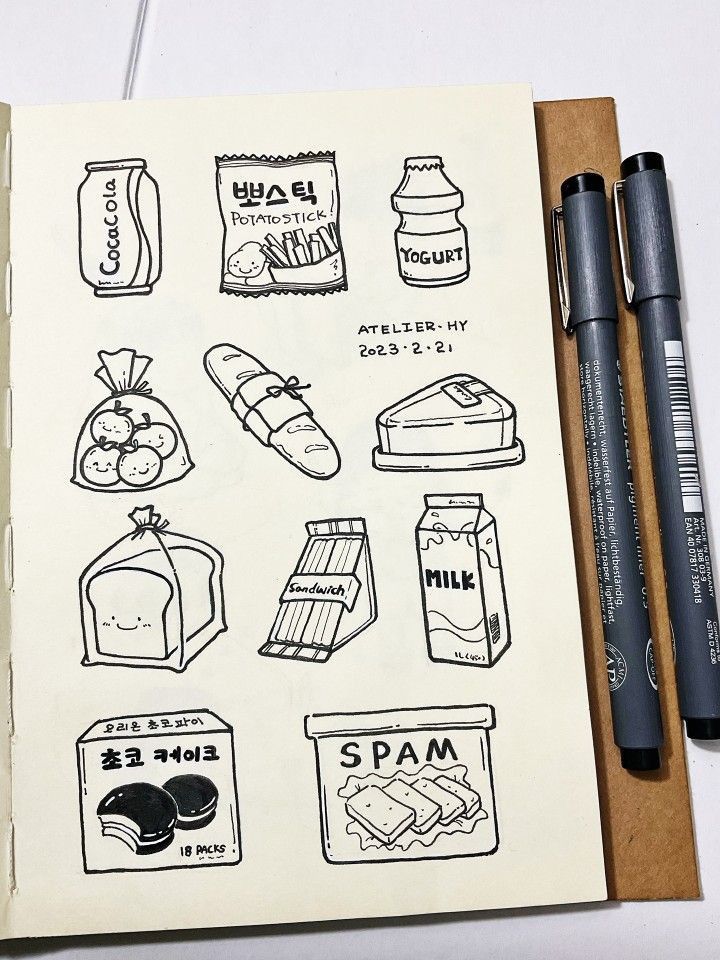 CocaCola
뽀스틱
POTATOSTICK!
YOGURT
ATELIER·HY
2023·2·21
Sandwich
MILK
요리온 초코파이
초코 케이크
18 PACKS
SPAM
dokumentenecht, wasserfest auf Papier, lichtbeständig,
waagerecht lagern • indelible, waterproof on paper, lightfast,
pigment liner
MADE IN GERMANY
Art. Nr. 308 03-9
EAN 40 07817 330418
ASTM D 4236